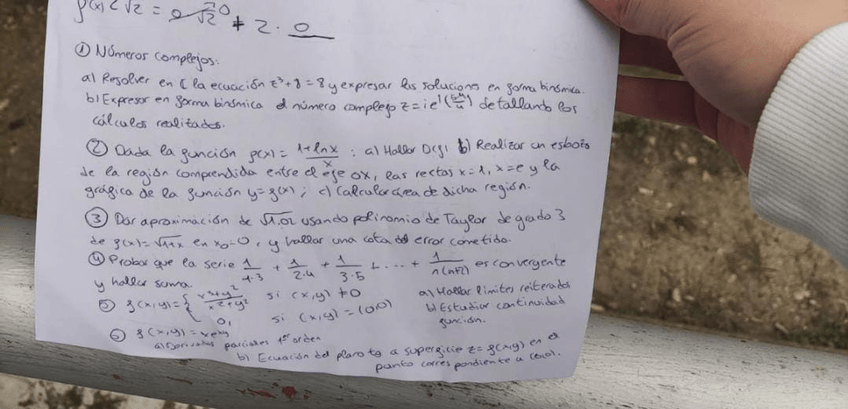 f(x) 2√2 = 0 √2 0 + 2 · 0
① Números complejos:
a) Resolver en C la ecuación z³+8=8 y expresar las soluciones en forma binómica.
b) Expresar en forma binómica el número complejo z=ie^i(5π/4) detallando los
cálculos realizados.
② Dada la función f(x)= 1+lnx/x : a) Hallar D(f) b) Realizar un esbozo
de la región comprendida entre el eje OX, las rectas x=1, x=e y la
gráfica de la función y=f(x); c) Calcular área de dicha región.
③ Dar aproximación de √1,02 usando polinomio de Taylor de grado 3
de f(x)=√1+x en x₀=0, y hallar una cota del error cometido.
④ Probar que la serie 1/1·3 + 1/2·4 + 1/3·5 + ... + 1/n(n+2) es convergente
y hallar suma.
⑤ f(x,y)={ si (x,y)≠0 a) Hallar límites reiterados
0, si (x,y)=(0,0) b) Estudiar continuidad
función.
f(x,y)=
a) Derivadas parciales 1er orden
b) Ecuación del plano tg a superficie z=f(x,y) en el
punto correspondiente a